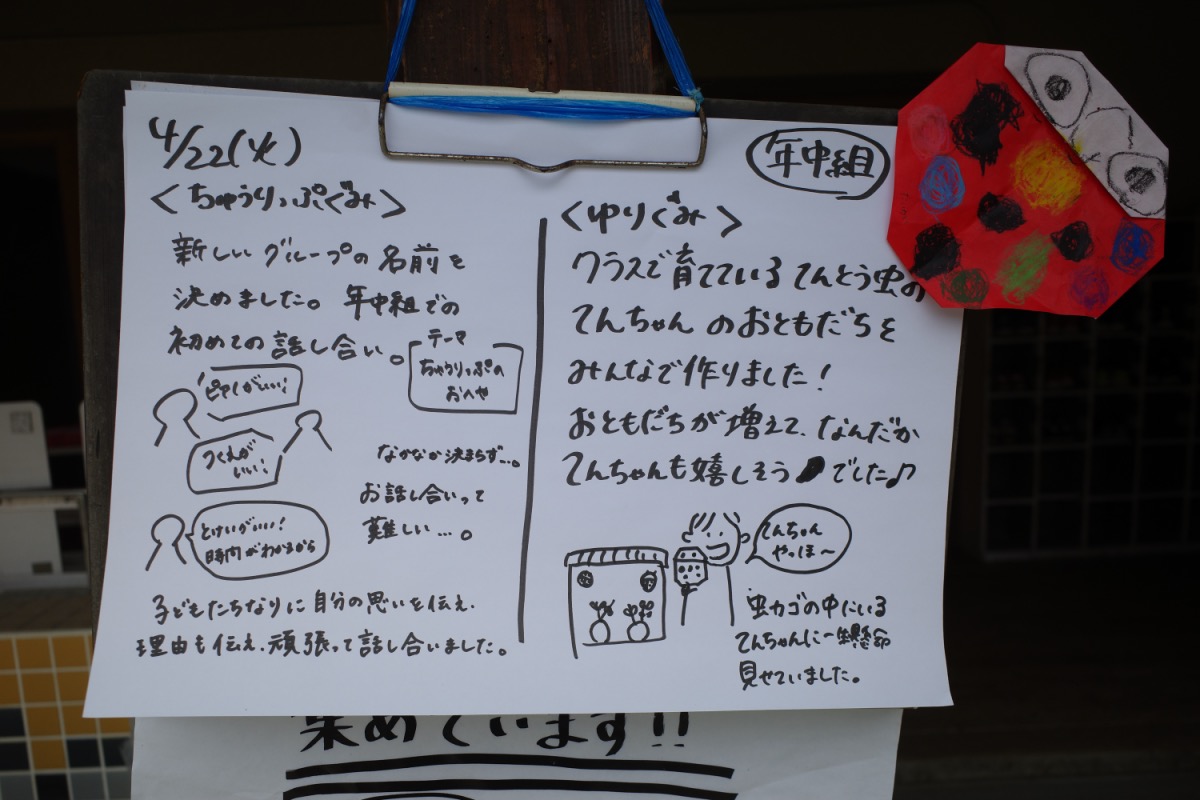 4/22(火)
年中組
<ちゅうりっぷぐみ>
新しいグループの名前を
決めました。年中組での
初めての話し合い。
テーマ
ちゅうりっぷの
おへや
ピアノがいい!
つくえが
いい!
なかなか決まらず…。
お話し合いって
難しい…。
とけいがいい!
時間がわかるから
子どもたちなりに自分の思いを伝え、
理由も伝え、頑張って話し合いました。
<ゆりぐみ>
クラスで育てているてんとう虫の
てんちゃんのおともだちを
みんなで作りました!
おともだちが増えて、なんだか
てんちゃんも嬉しそうでした♪
てんちゃん
やっほ〜
虫カゴの中にいる
てんちゃんに一生懸命
見せていました。
集めています!!